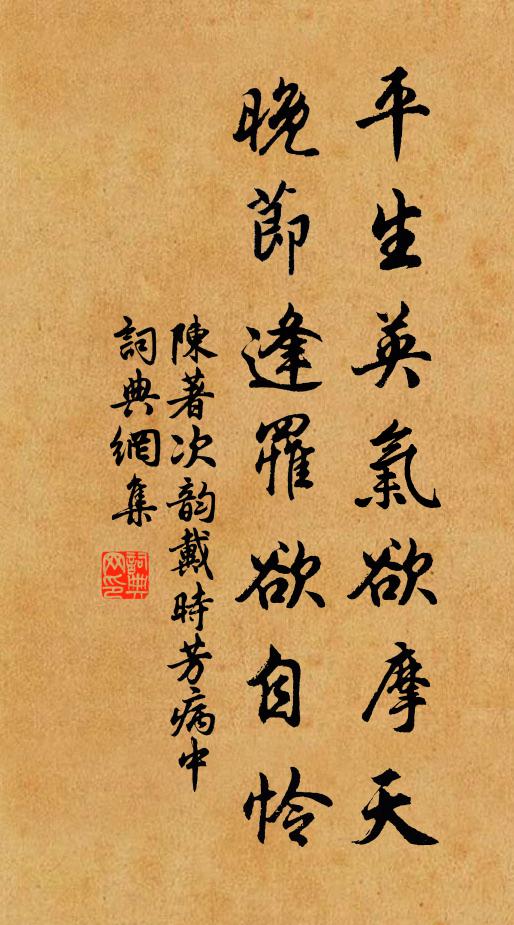 平生英氣欲摩天
晚節逢罹欲自怜
陳著次韵戴時芳病中
詞典網集
詞典
网印